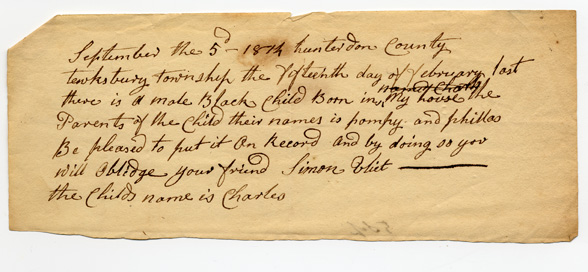 September the 5d - 1814 hunterdon County
tewksbury township the fifteenth day of february last
there is a male Black Child Born in my house the
Parents of the Child their names is pompy and phillas
Be pleased to put it On Record and by doing so you
will Oblidge your friend Simon Vliet
the Childs name is Charles